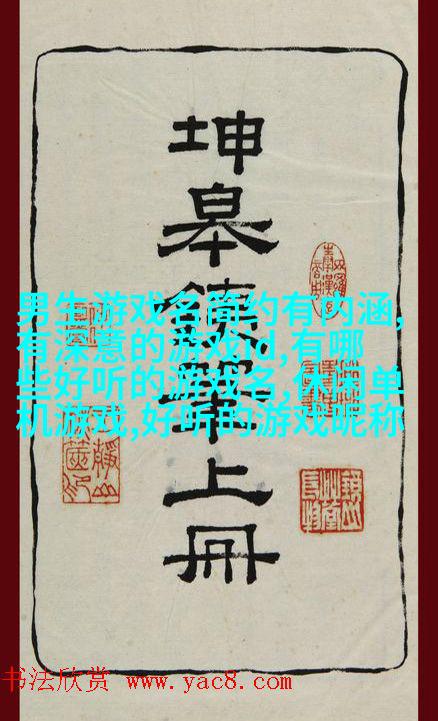 坤皋鐵筆上冊
男生游戏名简约有内涵,
有深意的游戏id,有哪
些好听的游戏名,休闲单
机游戏,好听的游戏昵称
书法欣赏 www.yac8.com